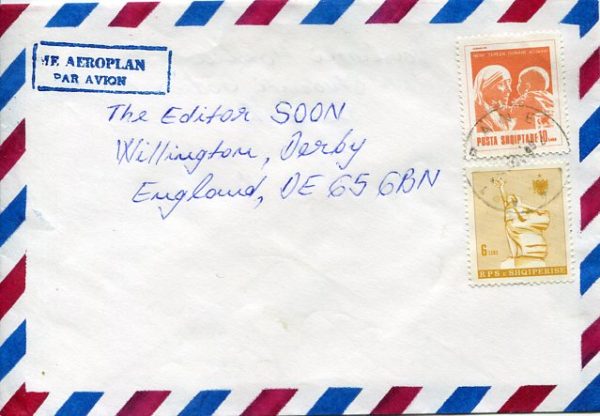 ME AEROPLAN
PAR AVION
The Editor SOON
Willington, Derby
England, DE65 6BN
POSTA SHQIPTARE 10
6 LEKE
RPS e SHQIPERISE